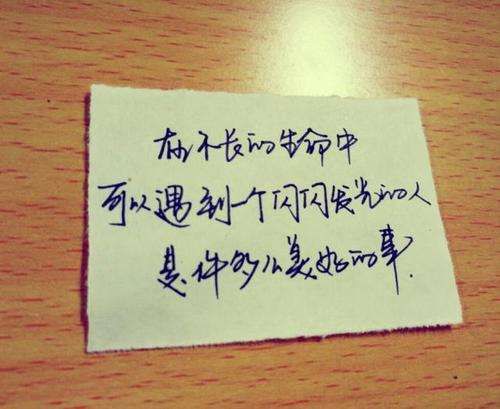 在不长的生命中
可以遇到一个闪闪发光的人
是件多么美好的事.